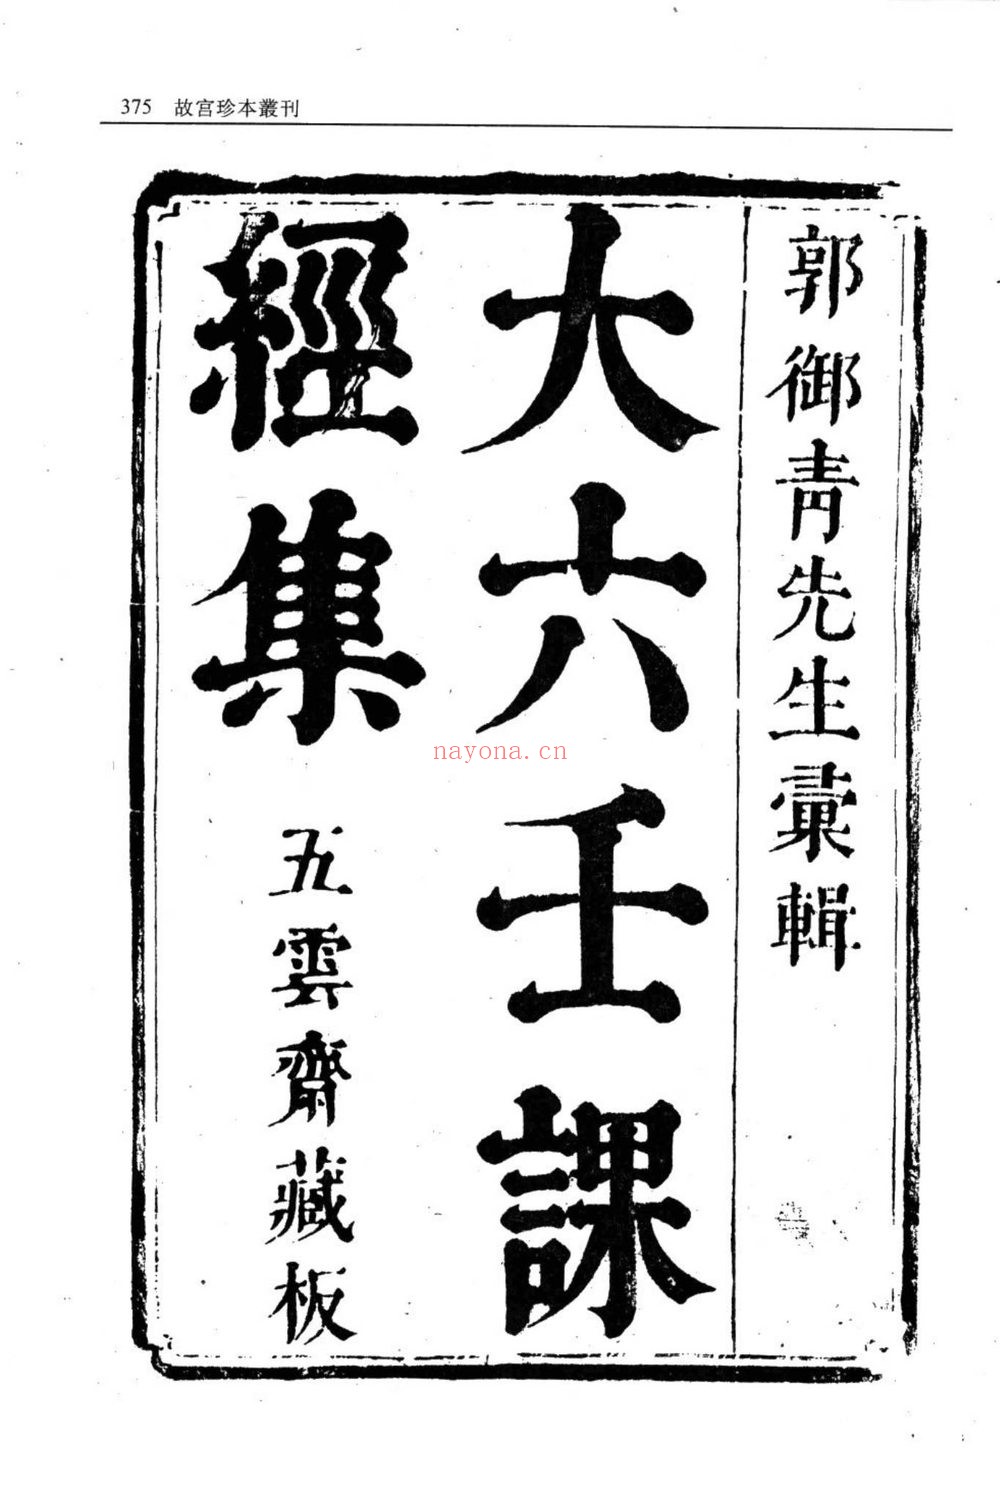 375 故宮珍本叢刊
郭御青先生彙輯
大六壬課
經集
五雲齋藏板
nayona.cn